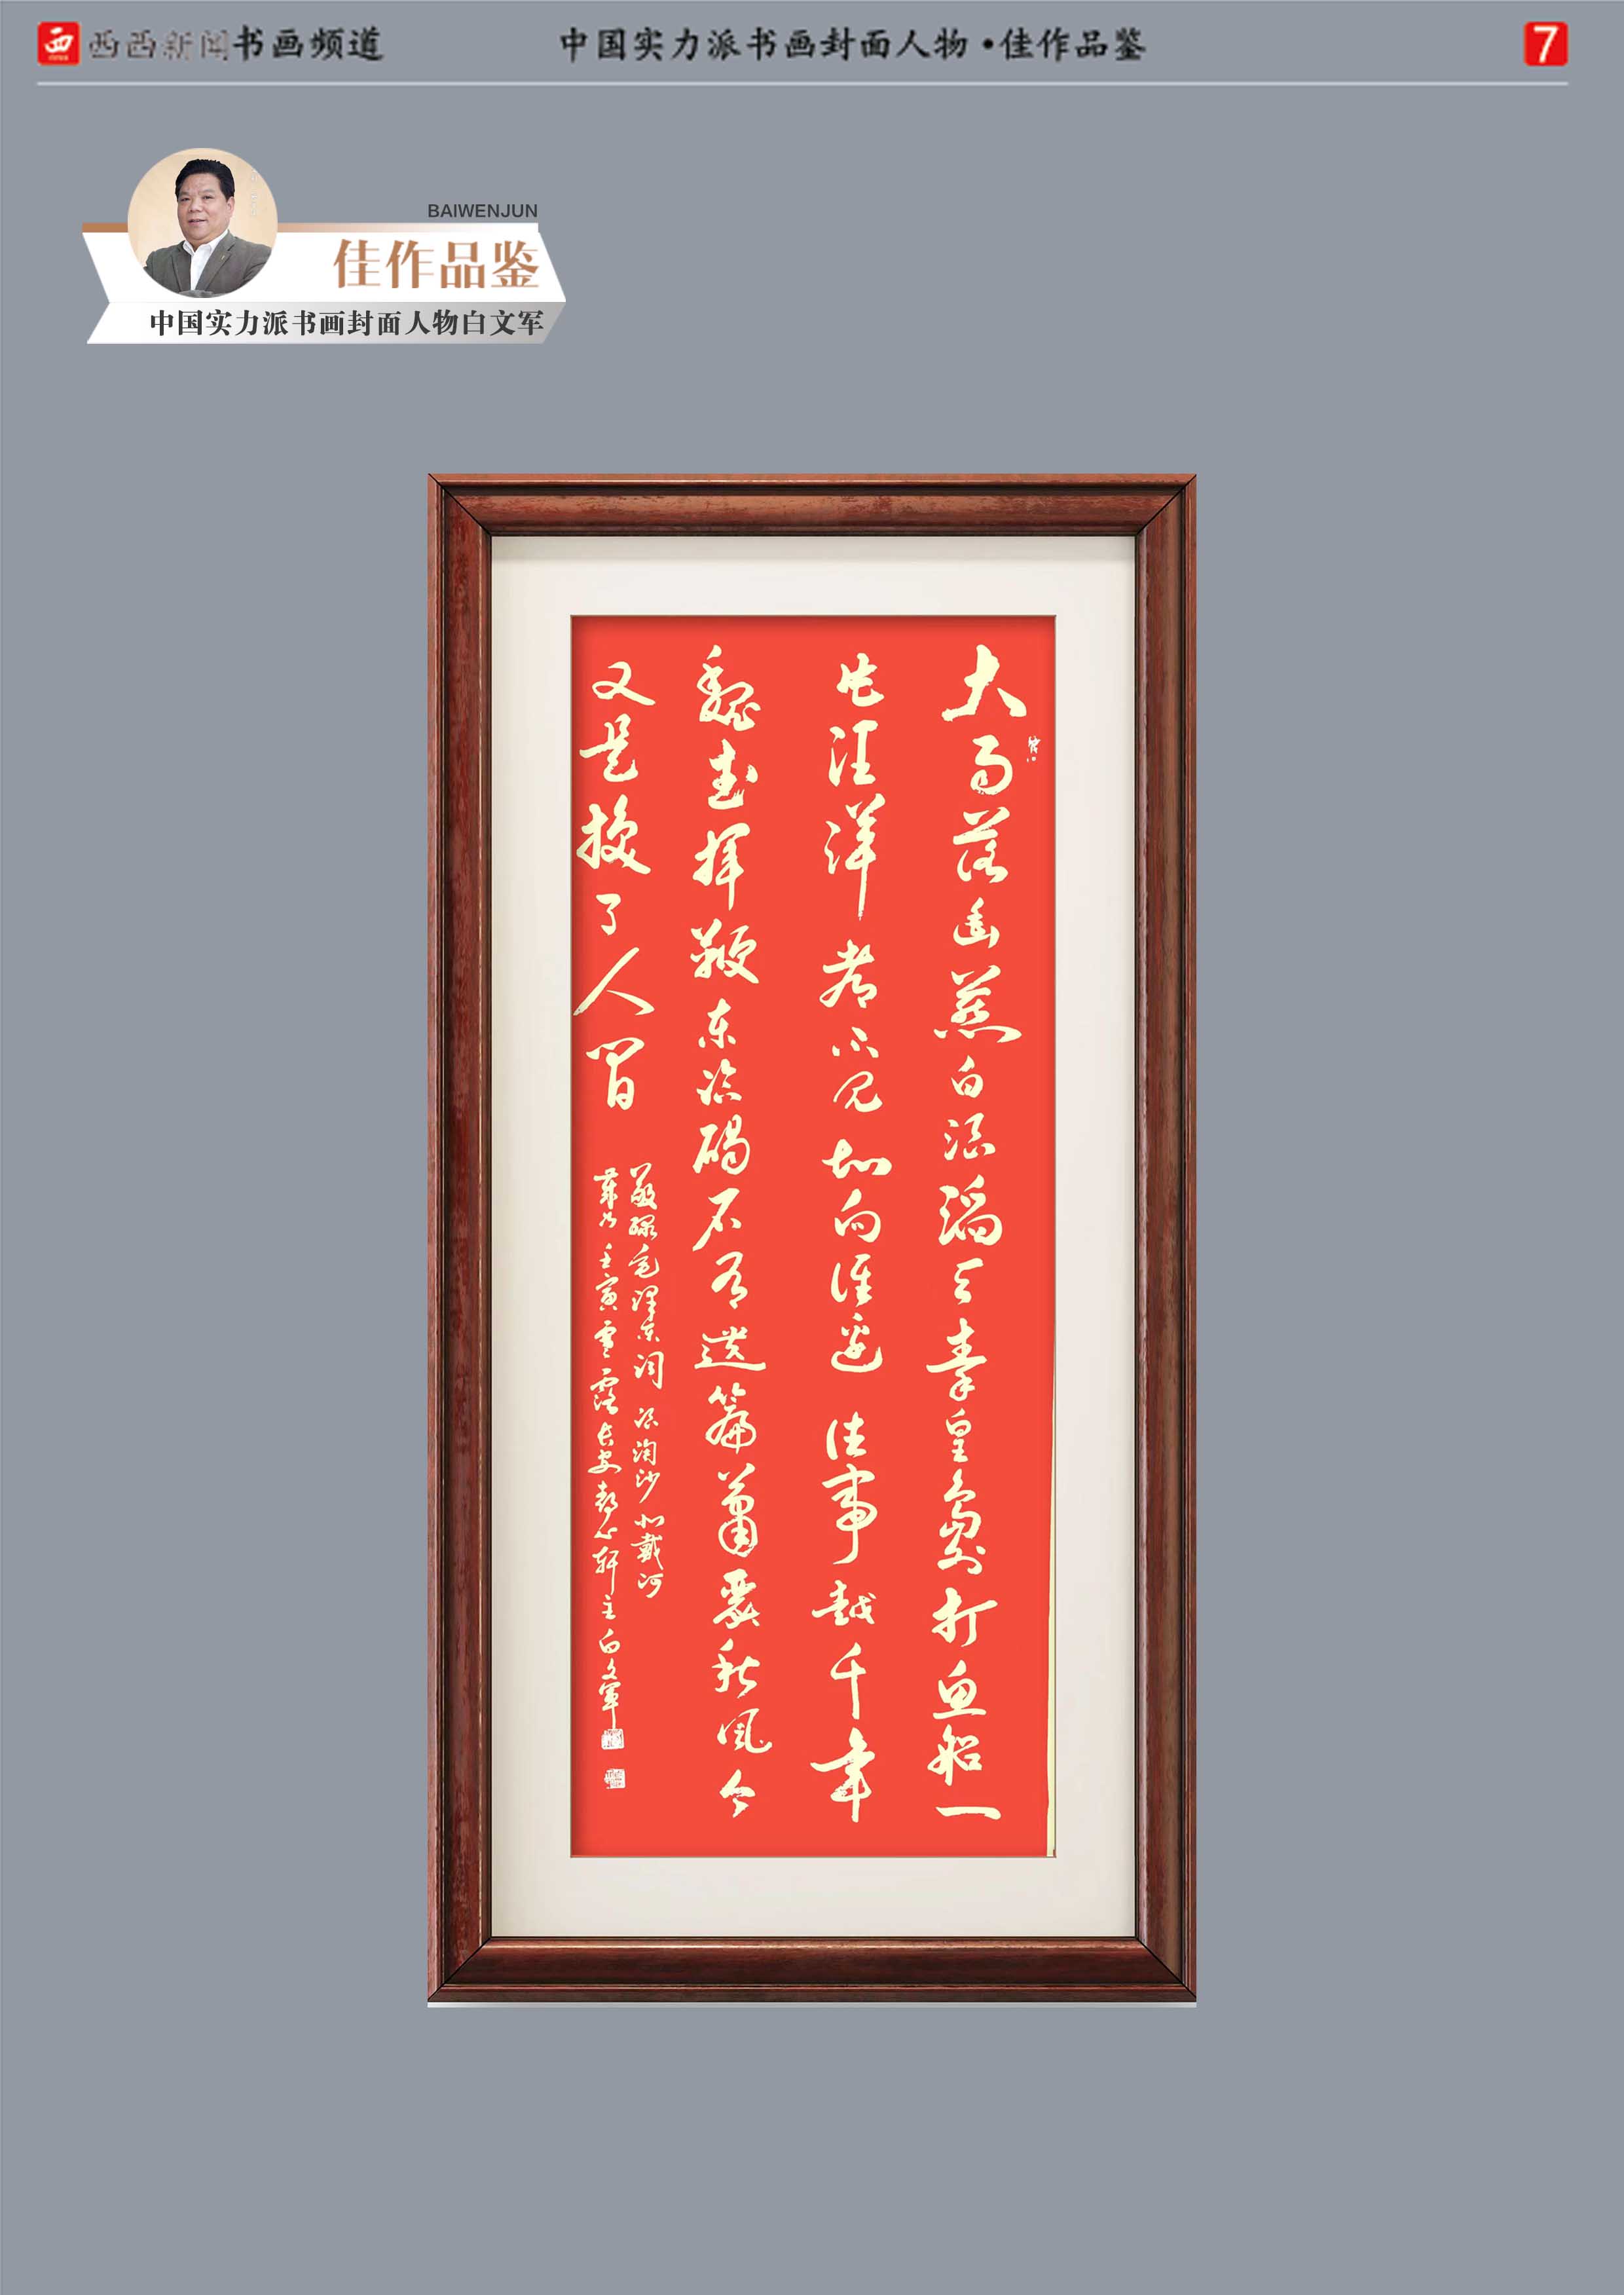 西
西西新闻书画频道
中国实力派书画封面人物•佳作品鉴
7
BAIWENJUN
佳作品鉴
中国实力派书画封面人物白文军
大雨落幽燕白浪滔天秦皇島外打鱼船一
片汪洋都不见知向谁边往事越千年
魏武挥鞭东临碣石有遗篇蕭瑟秋風今
又是换了人间
敬録毛泽东词浪淘沙北戴河
壬寅 长安 心轩主白文軍